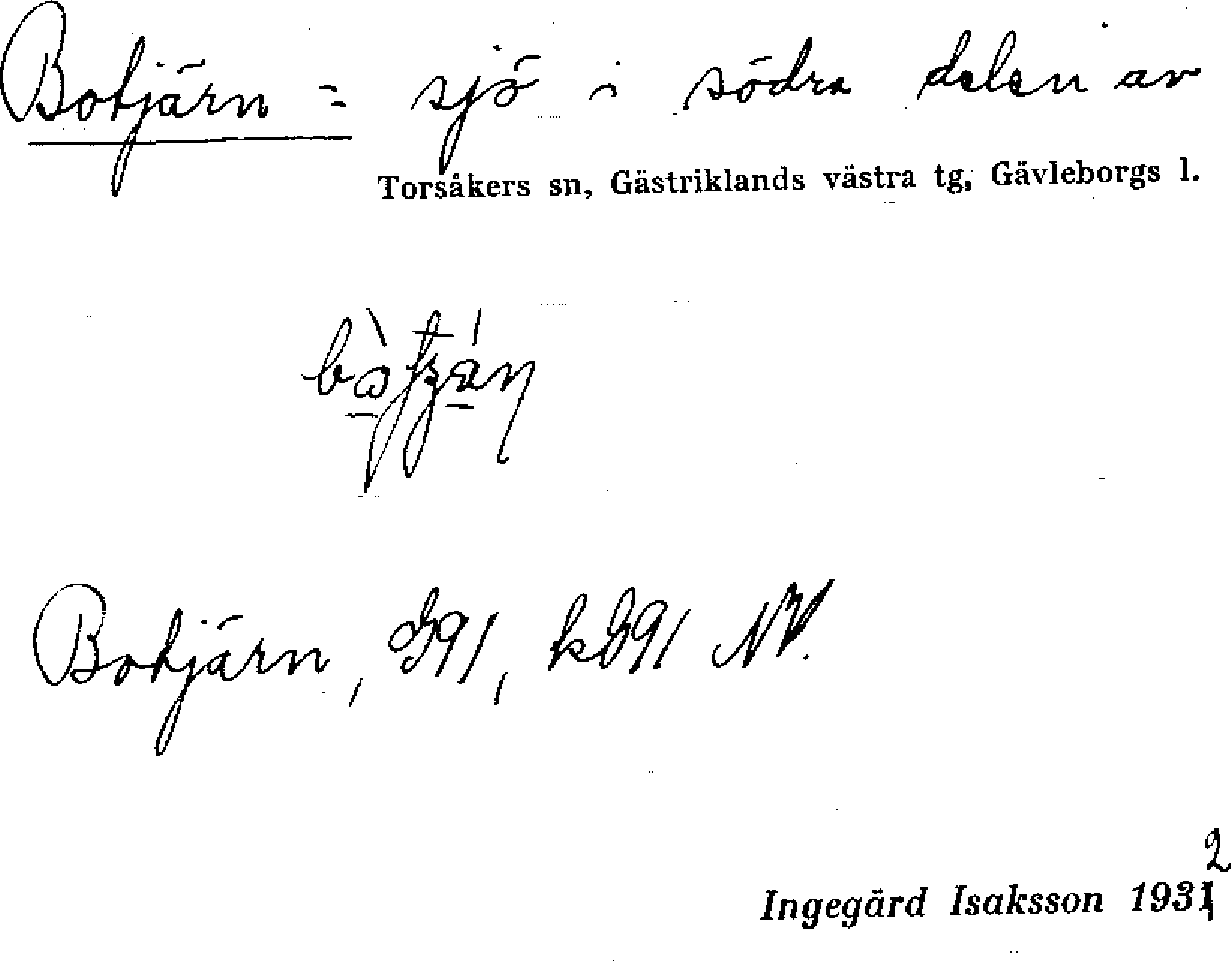 Botjärn = sjö i södra delen av
Torsåkers sn, Gästriklands västra tg, Gävleborgs l.
Botjärn, G91, kG91 NV.
Ingegärd Isaksson 1932